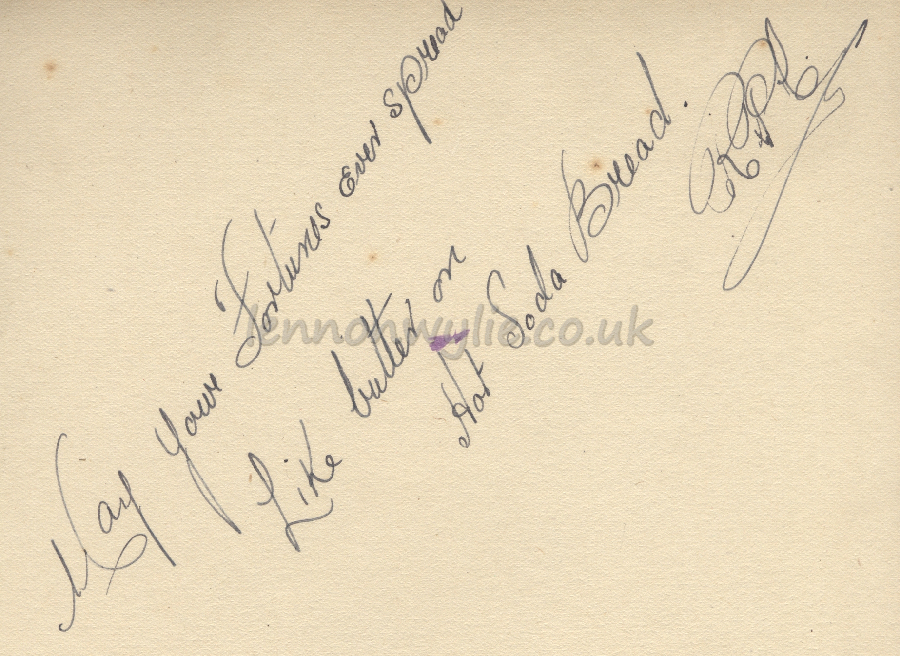 May your Fortunes ever spread
Like butter on
Hot Soda Bread.
lennonwylie.co.uk